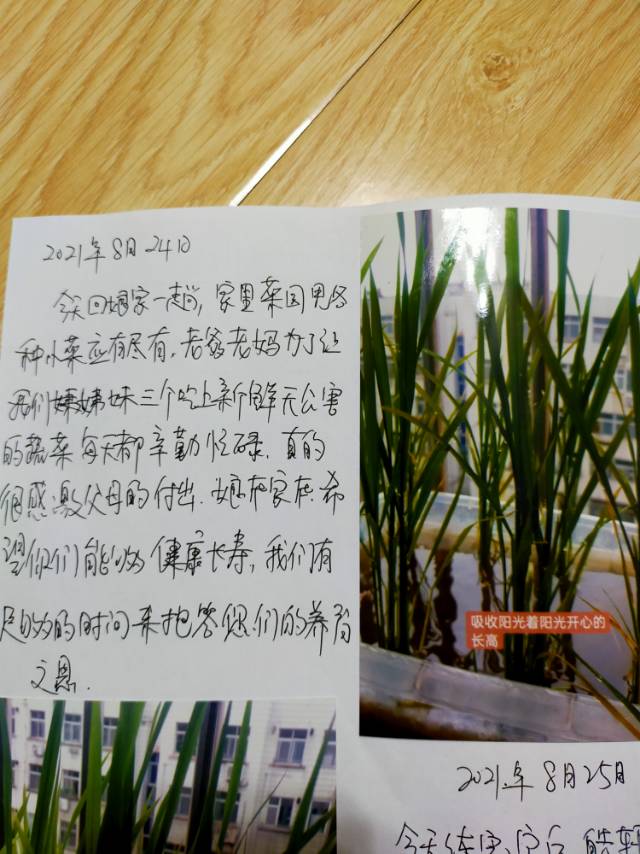 2021年8月24日
今天回娘家一趟，家里菜园里各
种小菜应有尽有，老爸老妈为了让
我们姊妹三个吃上新鲜无公害
的蔬菜每天都辛勤忙碌，真的
很感激父母的付出，娘在家在，希
望你们能够健康长寿，我们有
足够的时间来报答您们的养育
之恩.
吸收阳光着阳光开心的
长高
2021.年8月25日
今天